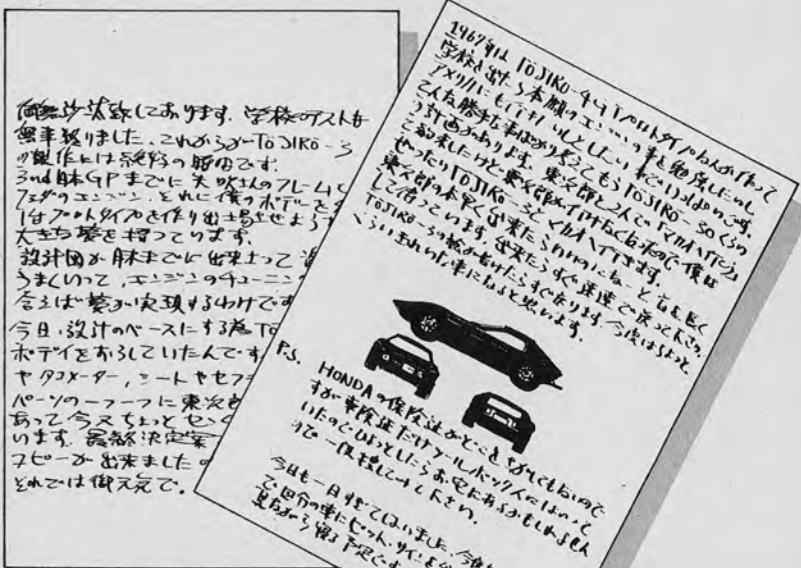 御無沙汰致しております。学校のテストも
無事終りました。これからがTOJIRO-3
の製作には絶好の時田です。
3nd日本GPまでに矢吹さんのフレームと
のエンジン、それに僕のボデーをの
1台プロトタイプを作り出場させよう
大きな夢を持っています。
設計図が月末までに出来上って
うまくいって、エンジンのチューニング
合えば夢が実現するわけです
今日、設計のベースにする為TO
ボデイをおろしていたんです
やタコメーター、シートやセフ
パーツの一つ一つに東次
あって今又ちょっとせ
います。最終決定案
コピーが出来ました
それでは御元気で。
1967年は TOJIRO-4 GTプロトタイプなんか作って
学校を出たら本願のエンジンの事を勉強したいし
アメリカにも行きたいしとしたい事でいっぱいです。
こんな勝手な事ばかり考えてもうTOJIRO-30くらの
計画があります。東次郎と2人で「マカオへ行こう」と
約束したけど東次郎が行けなくなったので僕は
ぜったいTOJIRO-3とマカオへ行きます。
東次郎の本早く出来たらいいのになーと首を長く
して待っています。出来たらすぐ速達で送って下さい。
TOJIRO-3の絵が書けたらすぐ送ります。今度はちょっと
くらいきれいな車になると思います。
P.S. HONDAの保険証がどこをさがしてもないので
すが車検証だけツールボックスにはいって
いたのでひょっとしたらお宅にあるかもしれません
ので一度探してみて下さい。
今日も一日すぎてしまいました。今夜も
で自分の車にピット・サインを
見ながら寝る予定です。